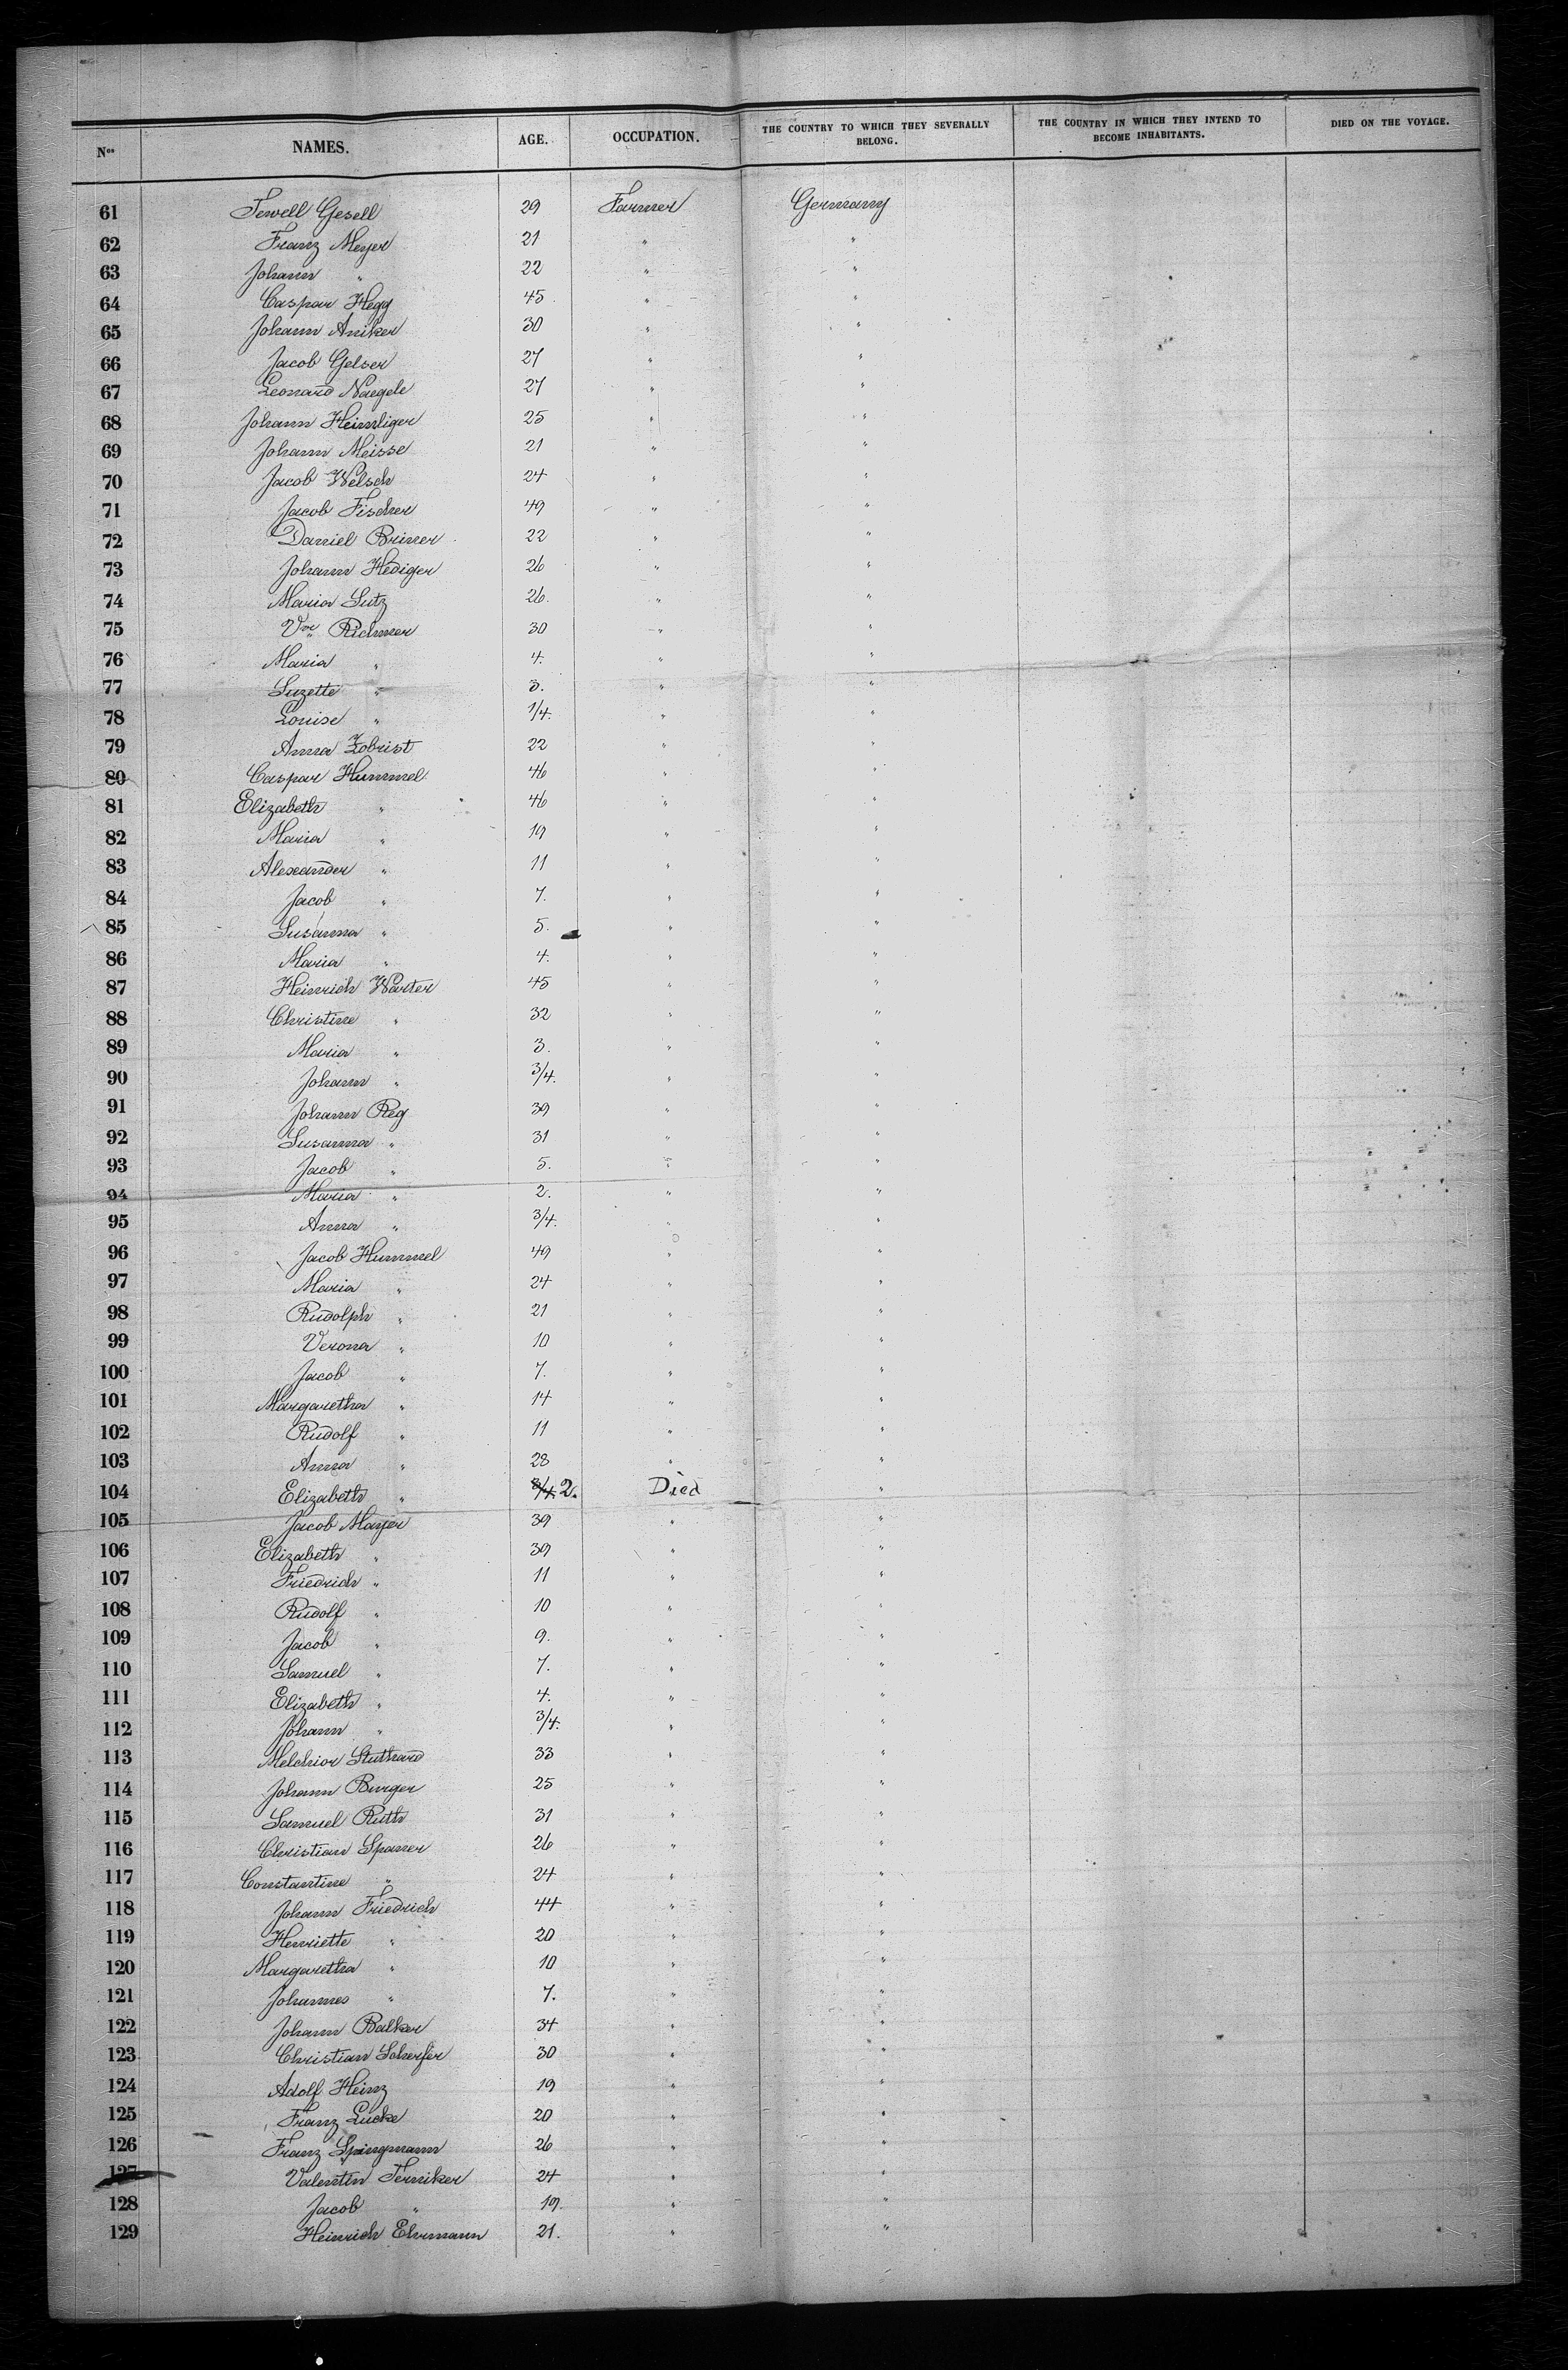 Nos NAMES. AGE. OCCUPATION. THE COUNTRY TO WHICH THEY SEVERALLY BELONG. THE COUNTRY IN WHICH THEY INTEND TO BECOME INHABITANTS. DIED ON THE VOYAGE.
61 Sewell Gesell 29 Farmer Germany
62 Franz Meyer 21 " "
63 Johann " 22 " "
64 Caspar Hegg 45 " "
65 Johann Aniker 30 " "
66 Jacob Gelser 27 " "
67 Leonard Naegele 27 " "
68 Johann Heimliger 25 " "
69 Johann Meisse 21 " "
70 Jacob Welsch 24 " "
71 Jacob Fischer 49 " "
72 Daniel Briner 22 " "
73 Johann Hediger 26 " "
74 Maria Lutz 26. " "
75 Vve Richner 30 " "
76 Maria " 4. " "
77 Suzette " 3. " "
78 Louise " 1/4. " "
79 Anna Zobrist 22 " "
80 Caspar Hummel 46 " "
81 Elizabeth " 46 " "
82 Maria " 19 " "
83 Alexander " 11 " "
84 Jacob " 7. " "
85 Susanna " 5. " "
86 Maria " 4. " "
87 Heinrich Warter 45 " "
88 Christine " 32 " "
89 Maria " 3. " "
90 Johann " 3/4. " "
91 Johann Reg 39 " "
92 Susanna " 31 " "
93 Jacob " 5. " "
94 Maria " 2. " "
95 Anna " 3/4. " "
96 Jacob Hummel 49 " "
97 Maria " 24 " "
98 Rudolph " 21 " "
99 Verona " 10 " "
100 Jacob " 7. " "
101 Margaretha " 14 " "
102 Rudolf " 11 " "
103 Anna " 28 " "
104 Elizabeth " 3/4. 2. Died "
105 Jacob Mayer 39 " "
106 Elizabeth " 39 " "
107 Friedrich " 11 " "
108 Rudolf " 10 " "
109 Jacob " 9. " "
110 Samuel " 7. " "
111 Elizabeth " 4. " "
112 Johann " 3/4. " "
113 Melchior Stuthard 33 " "
114 Johann Burger 25 " "
115 Samuel Ruth 31 " "
116 Christian Spaner 26 " "
117 Constantine " 24 " "
118 Johann Friedrich 44 " "
119 Henriette " 20 " "
120 Margaretha " 10 " "
121 Johannes " 7. " "
122 Johann Balker 34 " "
123 Christian Scherfer 30 " "
124 Adolf Heinz 19 " "
125 Franz Lucke 20 " "
126 Franz Springmann 26 " "
127 Valentin Ferniker 24 " "
128 Jacob " 19. " "
129 Heinrich Ehrmann 21. " "